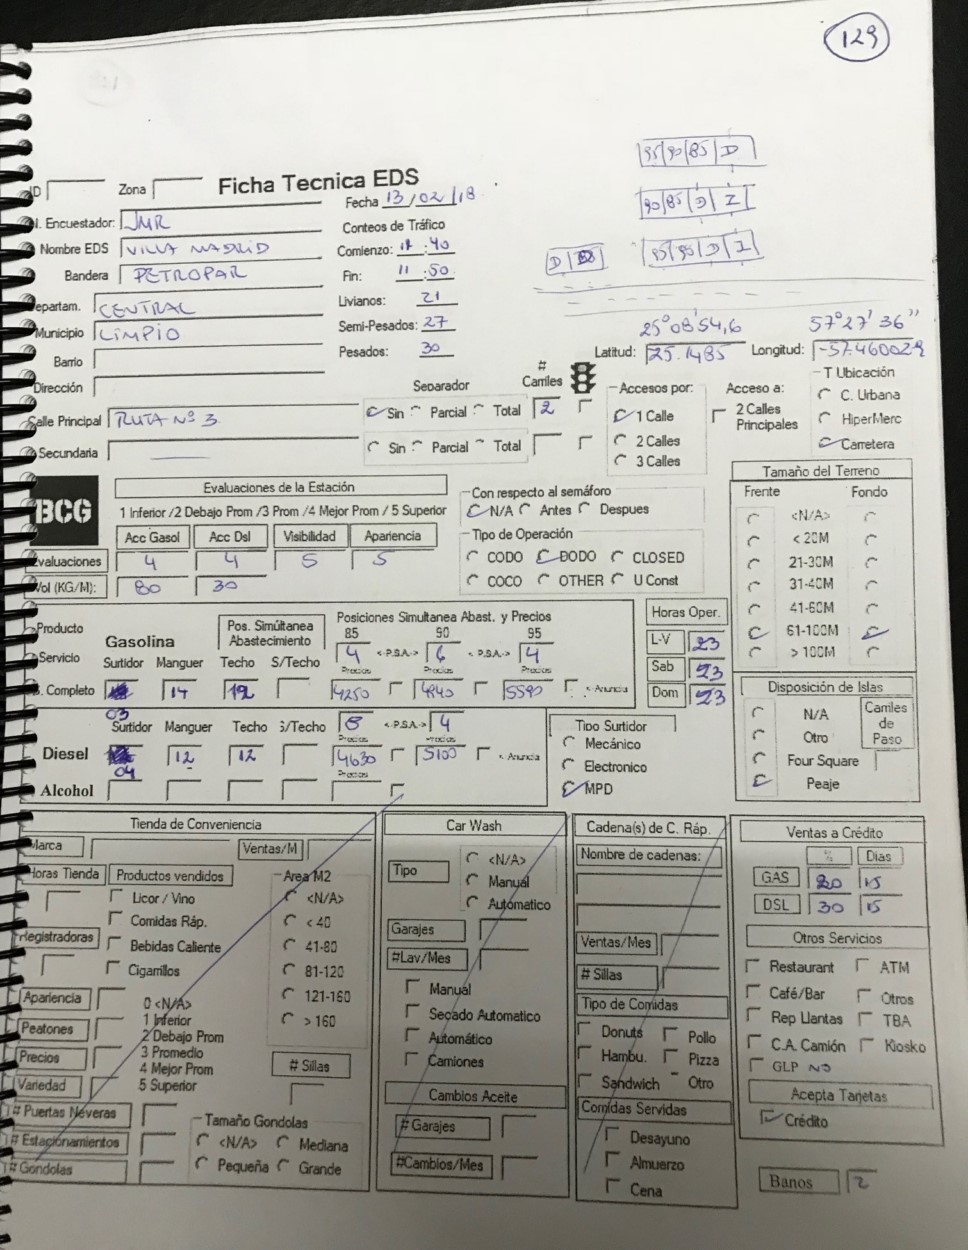 129
95 90 85 D
90 85 D I
95 95 D I
D
ID Zona Ficha Tecnica EDS
Fecha 13/02/18
N. Encuestador: JMR
Conteos de Tráfico
Nombre EDS VILLA MADRID
Comienzo: 11:40
Bandera PETROPAR
Fin: 11:50
Departam. CENTRAL
Livianos: 21
Municipio LIMPIO
Semi-Pesados: 27
Barrio
Pesados: 30
25°08'54,6 57°27'36"
Latitud: 25.1485 Longitud: -57.460029
Dirección
Separador # Carriles
Calle Principal RUTA Nº 3
Sin Parcial Total 2
Secundaria
Sin Parcial Total
Accesos por:
1 Calle
2 Calles
3 Calles
Acceso a:
2 Calles Principales
T Ubicación
C. Urbana
HiperMerc
Carretera
BCG
Evaluaciones de la Estación
1 Inferior /2 Debajo Prom /3 Prom /4 Mejor Prom / 5 Superior
Acc Gasol Acc Dsl Visibilidad Apariencia
Evaluaciones 4 4 5 5
Vol (KG/M): 80 30
Con respecto al semáforo
N/A Antes Despues
Tipo de Operación
CODO DODO CLOSED
COCO OTHER U Const
Tamaño del Terreno
Frente Fondo
<N/A>
< 20M
21-30M
31-40M
41-60M
61-100M
> 100M
Producto
Servicio
S. Completo
Gasolina
Pos. Simúltanea Abastecimiento
Posiciones Simultanea Abast. y Precios
85 90 95
4 <-P.S.A.-> 6 <-P.S.A.-> 4
Surtidor Manguer Techo S/Techo
Precios Precios Precios
14 12 4250 4940 5590 <- Anuncia
03
Surtidor Manguer Techo S/Techo
8 <-P.S.A.-> 4
Precios Precios
Diesel 12 12 4630 5100 <- Anuncia
04
Precios
Alcohol
Horas Oper.
L-V 23
Sab 23
Dom 23
Tipo Surtidor
Mecánico
Electronico
MPD
Disposición de Islas
N/A
Otro
Four Square
Peaje
Carriles de Paso
Tienda de Conveniencia
Marca Ventas/M
Horas Tienda Productos vendidos
Licor / Vino
Comidas Ráp.
Registradoras
Bebidas Caliente
Cigarrillos
Area M2
<N/A>
< 40
41-80
81-120
121-160
> 160
Apariencia
Peatones
Precios
Variedad
0 <N/A>
1 Inferior
2 Debajo Prom
3 Promedio
4 Mejor Prom
5 Superior
# Sillas
# Puertas Neveras
# Estacionamientos
# Gondolas
Tamaño Gondolas
<N/A> Mediana
Pequeña Grande
Car Wash
Tipo
<N/A>
Manual
Automatico
Garajes
#Lav/Mes
Manual
Secado Automatico
Automático
Camiones
Cambios Aceite
# Garajes
#Cambios/Mes
Cadena(s) de C. Ráp.
Nombre de cadenas:
Ventas/Mes
# Sillas
Tipo de Comidas
Donuts Pollo
Hambu. Pizza
Sandwich Otro
Comidas Servidas
Desayuno
Almuerzo
Cena
Ventas a Crédito
% Dias
GAS 20 15
DSL 30 15
Otros Servicios
Restaurant ATM
Café/Bar Otros
Rep Llantas TBA
C.A. Camión Kiosko
GLP NO
Acepta Tarjetas
Crédito
Banos 2